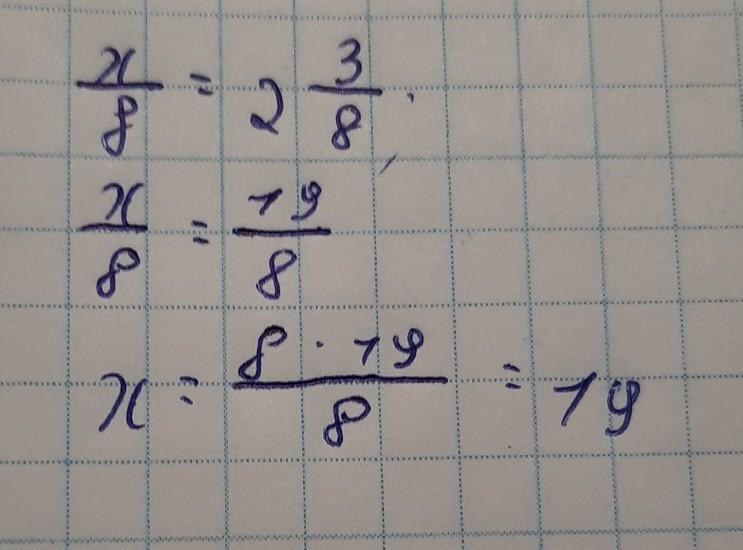 x/8 = 2 3/8.
x/8 = 19/8
x = 8 · 19/8 = 19